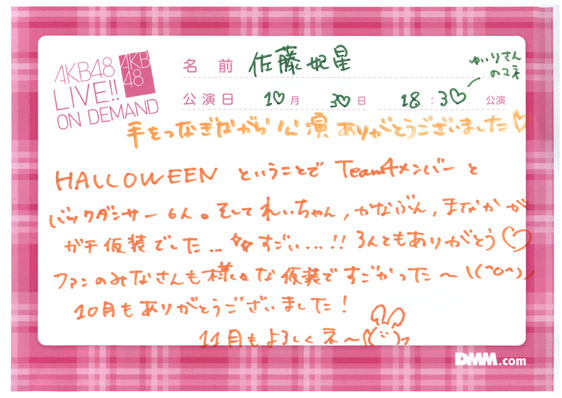 AKB48
LIVE!!
ON DEMAND
AKB
48
名前 佐藤妃星
ゆいりさん
のマネ
公演日 10月 30日 18:30 公演
手をつなぎながら公演ありがとうございました♡
HALLOWEEN ということで Team4メンバーと
バックダンサー6人。そしてれいちゃん,かなぶん,まなかが
ガチ仮装でした...すごい...!! 3人ともありがとう♡
ファンのみなさんも様々な仮装ですごかった〜\(^o^)/
10月もありがとうございました!
11月もよろしくネ〜
DMM.com